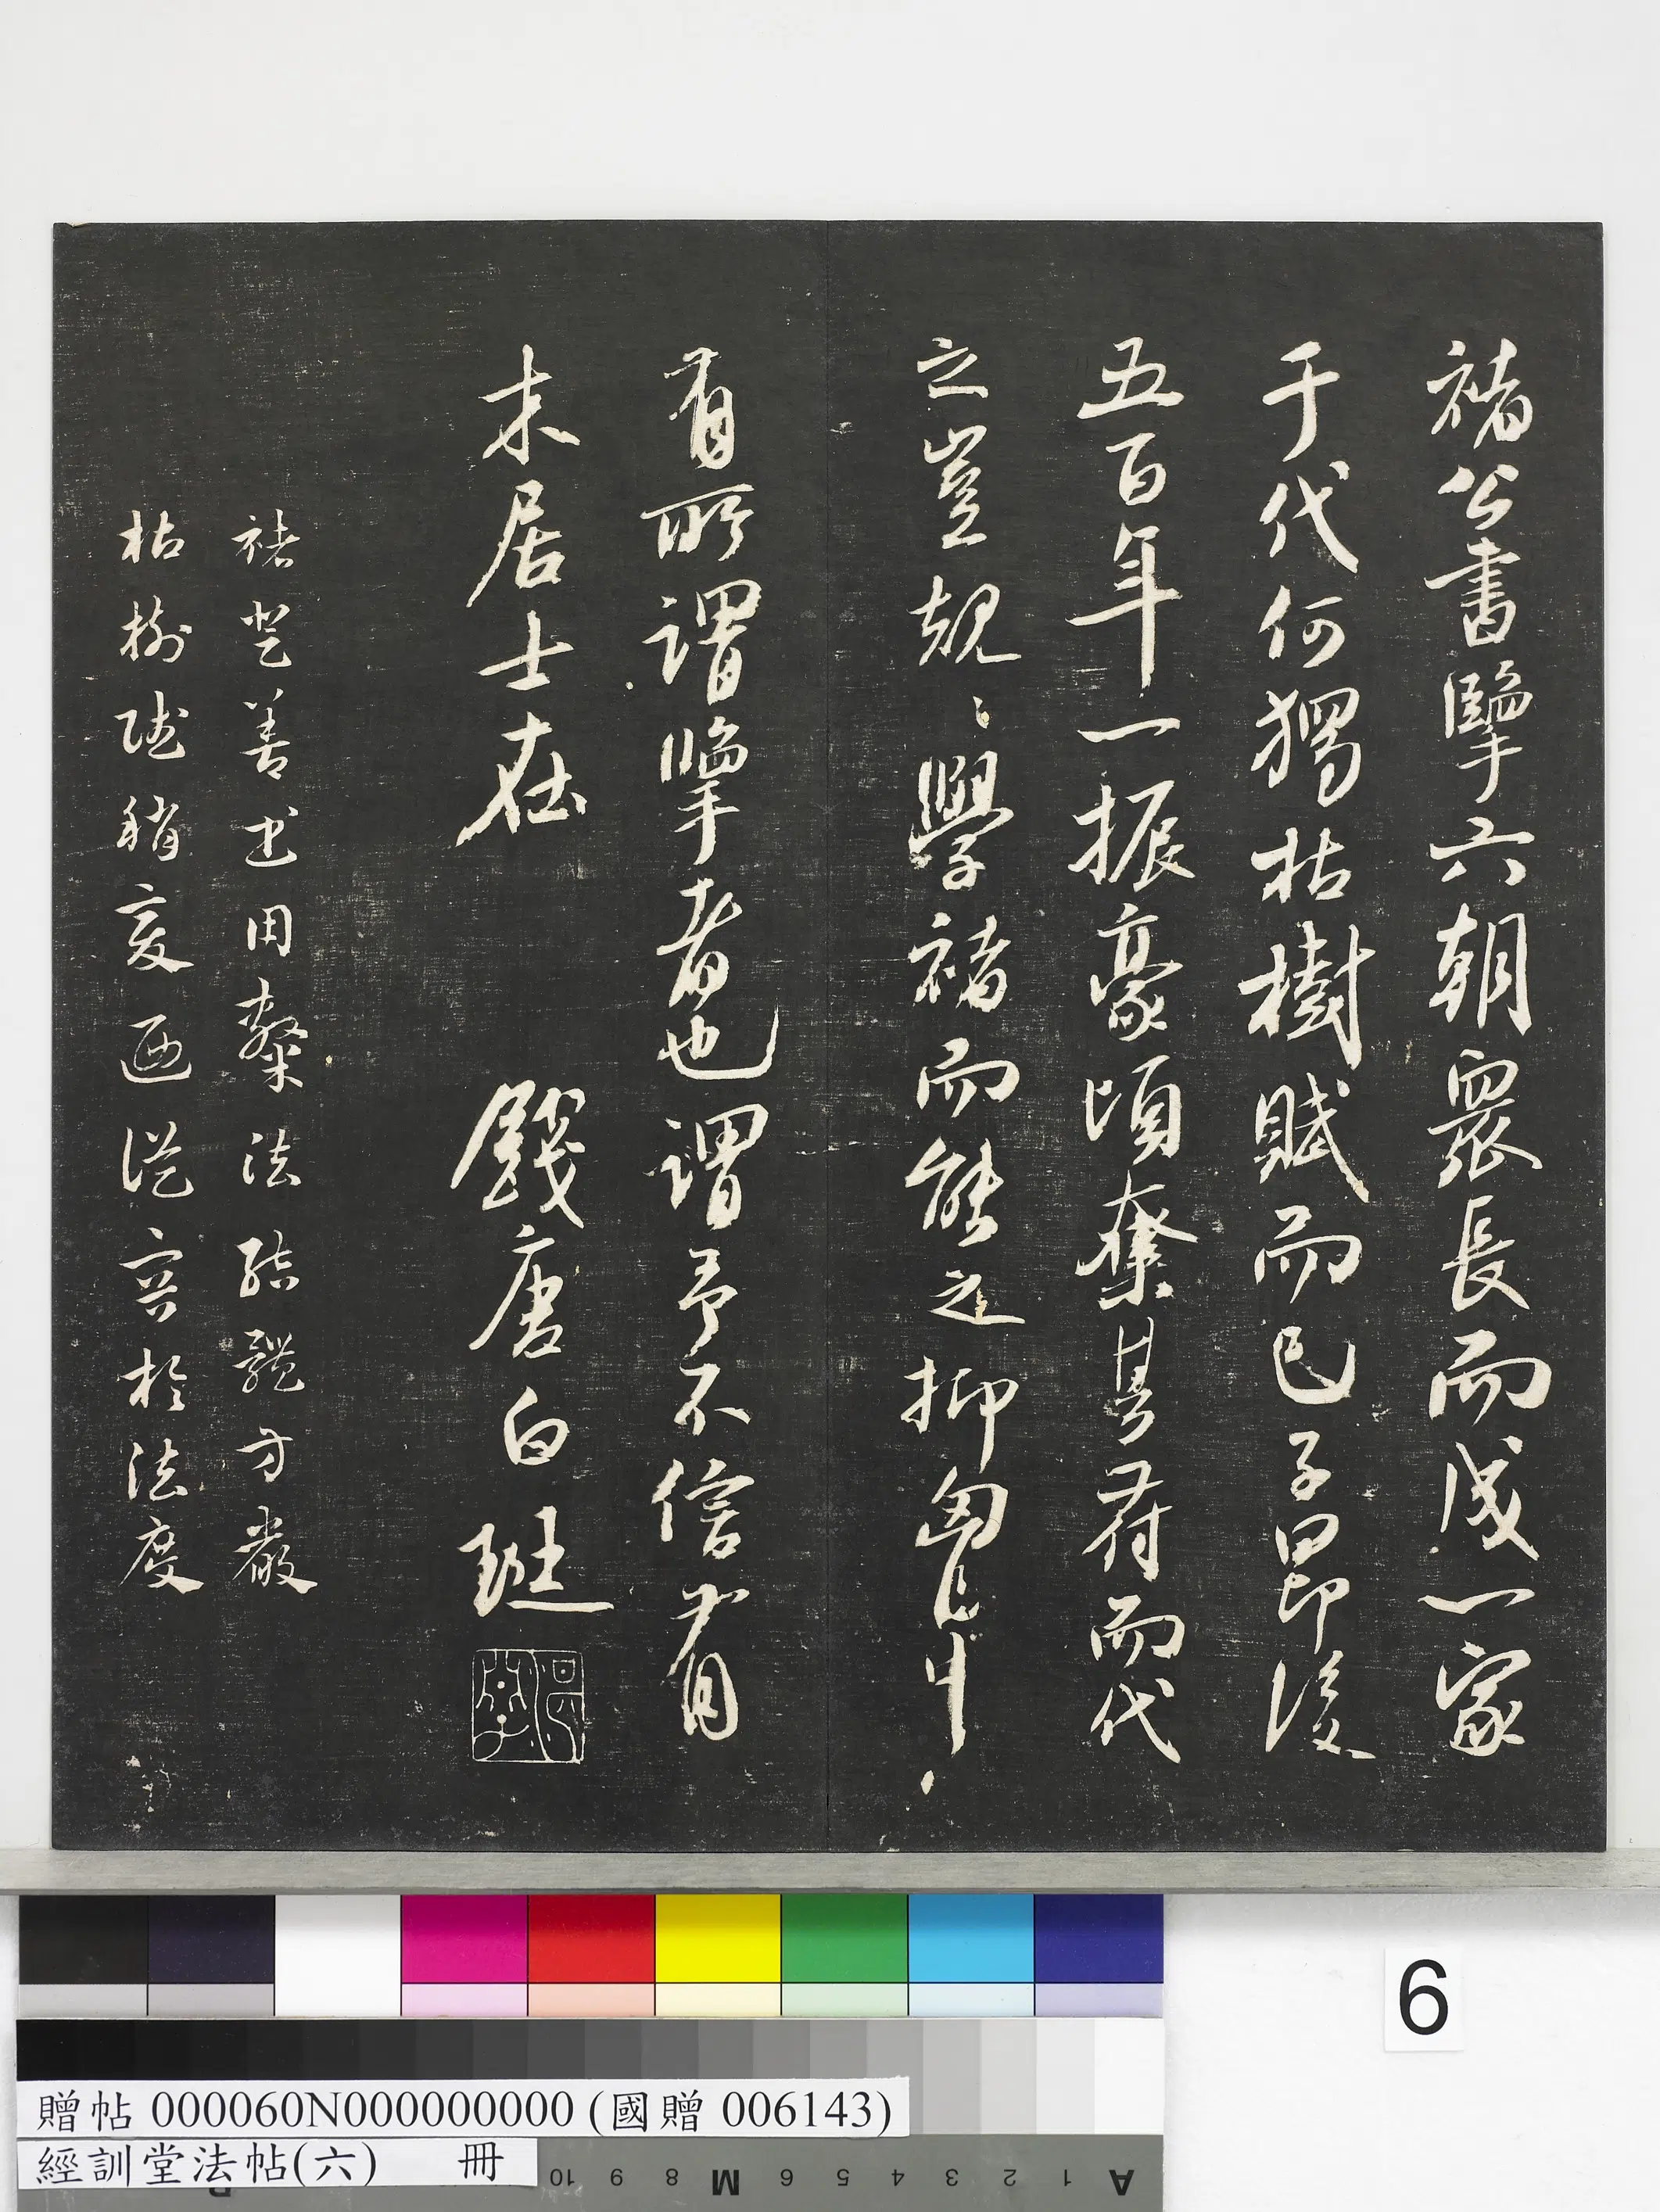 褚公書擥六朝眾長而成一家
于代何獨枯樹賦而已子昂後
五百年一振豪頃奪其符而代
之豈規〻學褚而能之抑匈中
有所謂擥者也謂予不信有
木居士在 錢唐白珽
褚登善書用隸法結體方嚴
枯樹賦稍變迺從容於法度
6
贈帖 000060N000000000 (國贈 006143)
經訓堂法帖(六) 冊
10 9 8 M 6 5 4 3 2 1 A